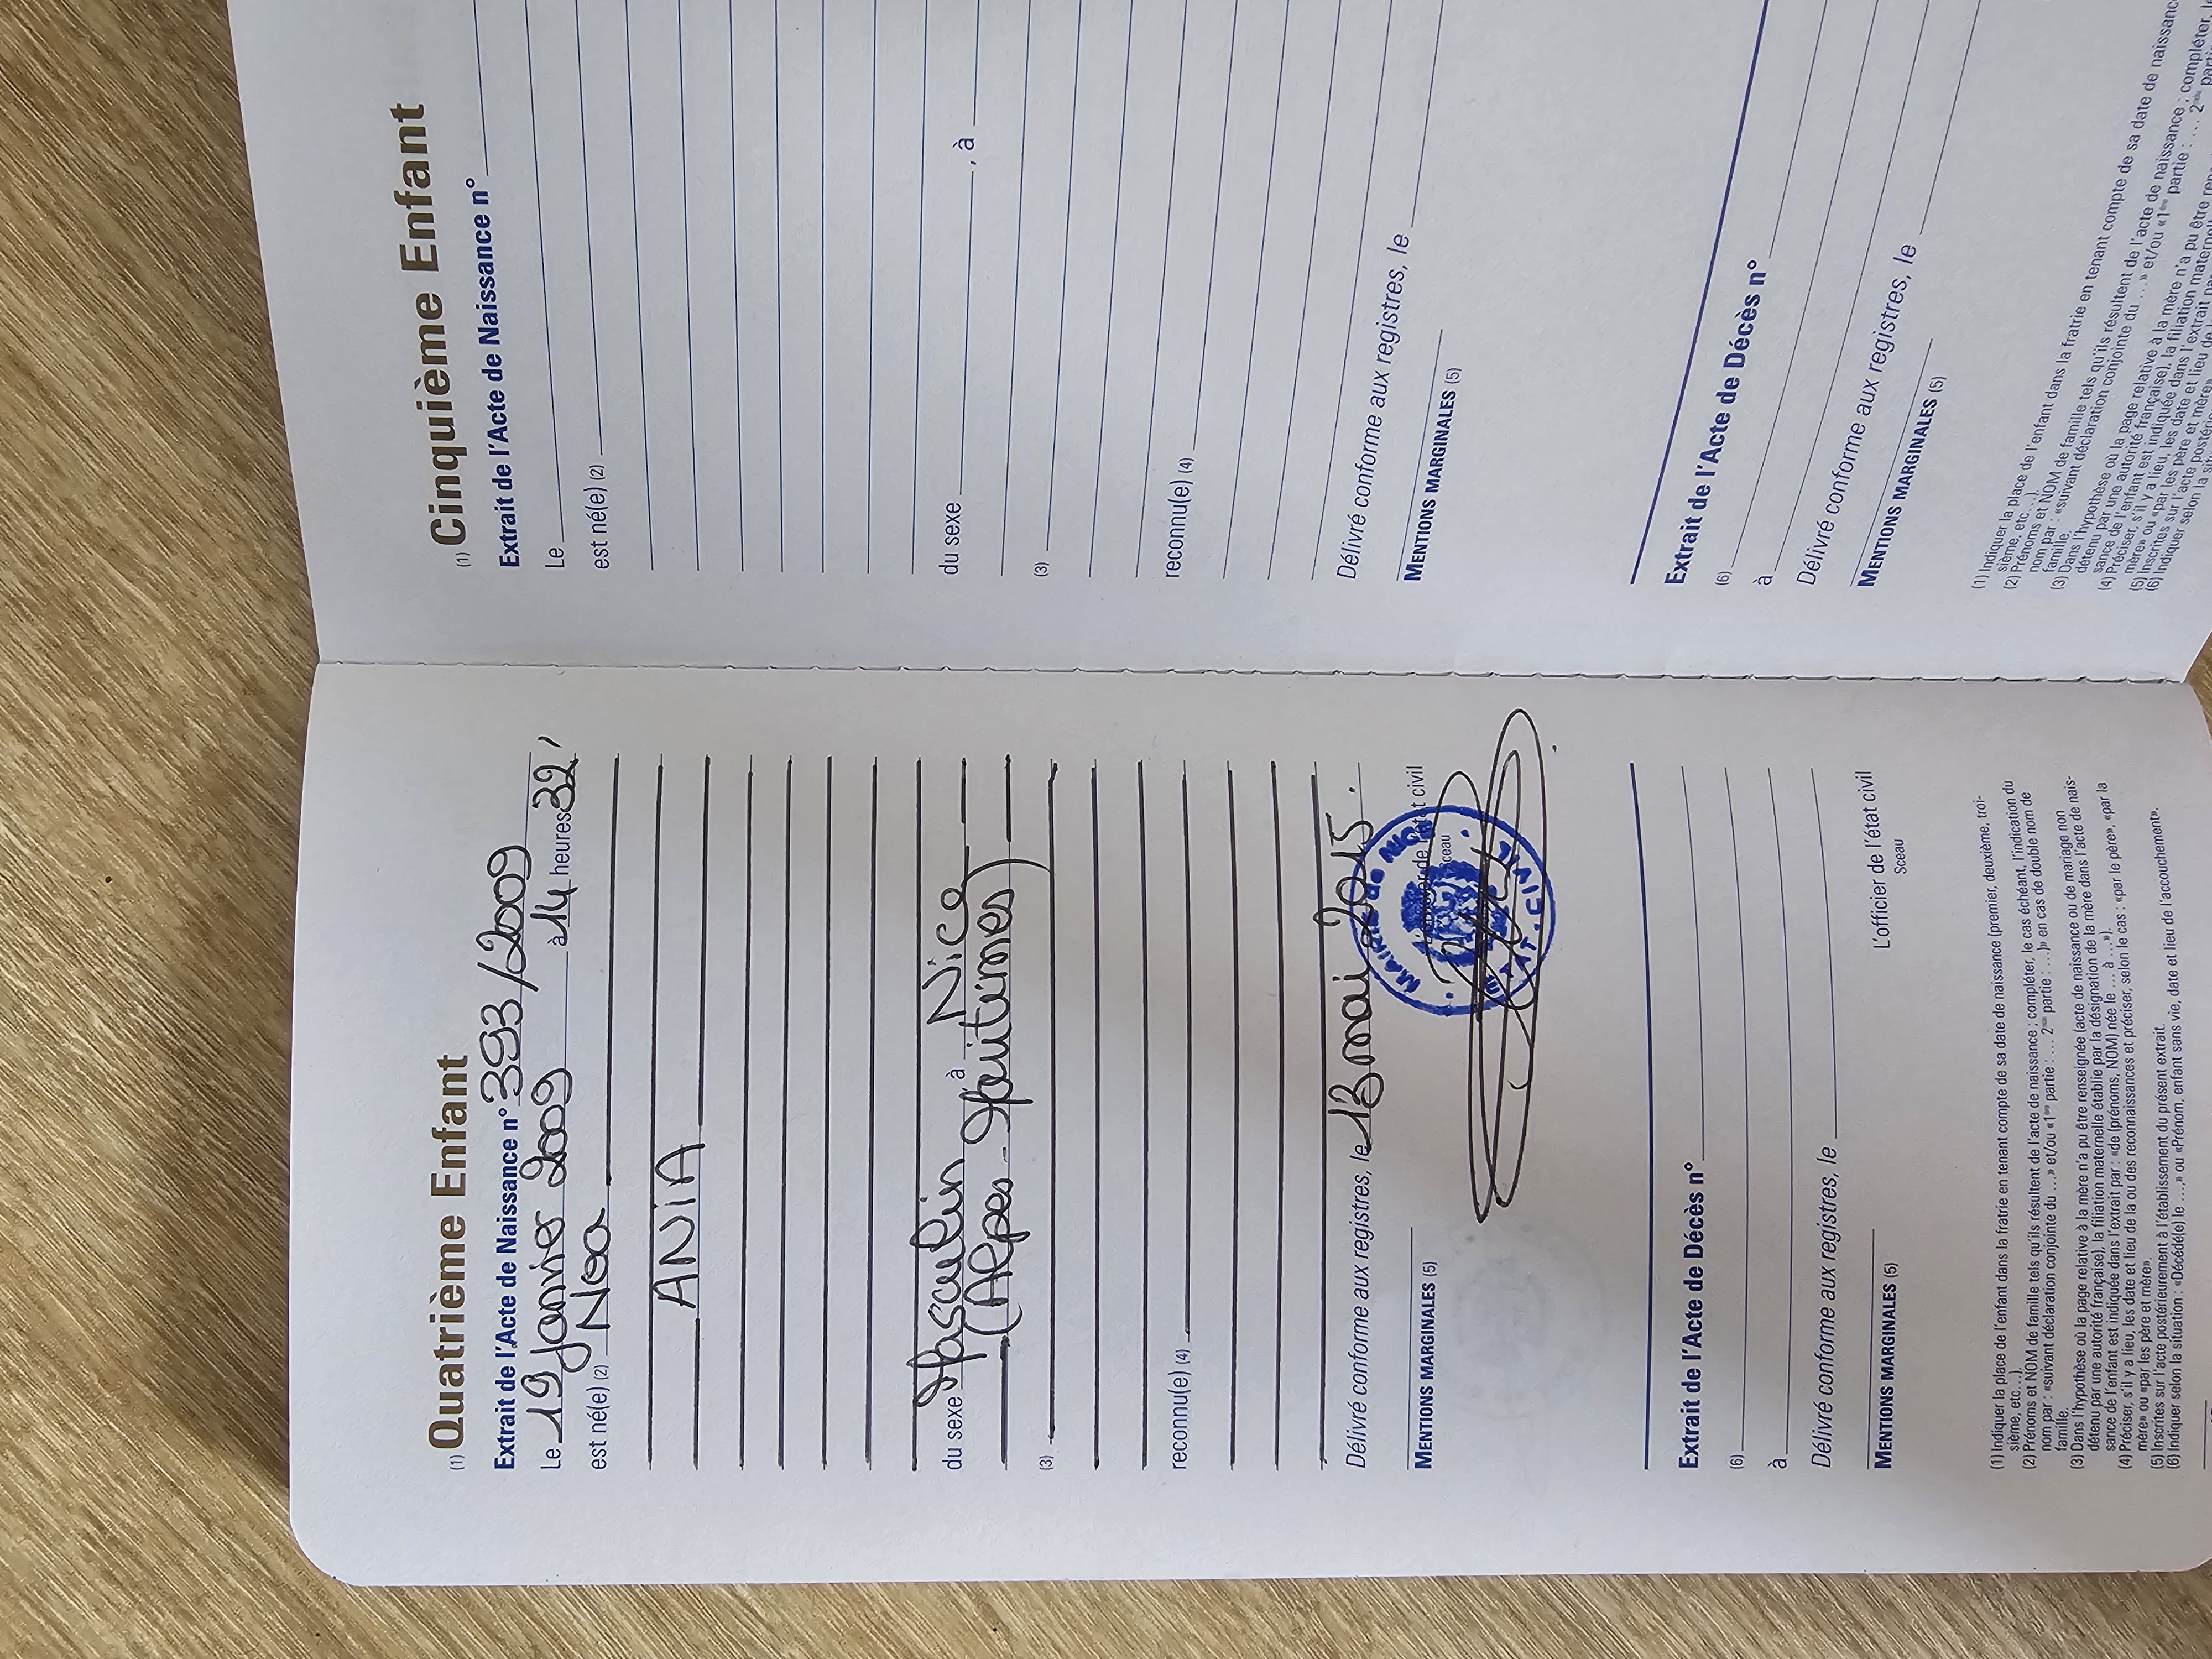 (1) Quatrième Enfant
Extrait de l'Acte de Naissance n° 393/2009
Le 19 Janvier 2009 à 14 heures 32,
est né(e) (2) Noa
ANIA
du sexe Masculin, à Nice
(Alpes-Maritimes)
(3)
reconnu(e) (4)
Délivré conforme aux registres, le 13 mai 2015.
L'officier de l'état civil
Sceau
MAIRIE de NICE
ETAT. CIVIL
MENTIONS MARGINALES (5)
Extrait de l'Acte de Décès n°
(6)
à
Délivré conforme aux registres, le
L'officier de l'état civil
Sceau
MENTIONS MARGINALES (5)
(1) Indiquer la place de l'enfant dans la fratrie en tenant compte de sa date de naissance (premier, deuxième, troi-
sième, etc. ...).
(2) Prénoms et NOM de famille tels qu'ils résultent de l'acte de naissance ; compléter, le cas échéant, l'indication du
nom par : «suivant déclaration conjointe du ...» et/ou «1ère partie : ... 2ème partie : ...)» en cas de double nom de
famille.
(3) Dans l'hypothèse où la page relative à la mère n'a pu être renseignée (acte de naissance ou de mariage non
détenu par une autorité française), la filiation maternelle établie par la désignation de la mère dans l'acte de nais-
sance de l'enfant est indiquée dans l'extrait par : «de (prénoms, NOM) née le ... à ...»).
(4) Préciser, s'il y a lieu, les date et lieu de la ou des reconnaissances et préciser, selon le cas : «par le père», «par la
mère» ou «par les père et mère».
(5) Inscrites sur l'acte postérieurement à l'établissement du présent extrait.
(6) Indiquer selon la situation : «Décédé(e) le ...,» ou «Prénom, enfant sans vie, date et lieu de l'accouchement».
(1) Cinquième Enfant
Extrait de l'Acte de Naissance n°
Le
est né(e) (2)
du sexe , à
(3)
reconnu(e) (4)
Délivré conforme aux registres, le
MENTIONS MARGINALES (5)
Extrait de l'Acte de Décès n°
(6)
à
Délivré conforme aux registres, le
MENTIONS MARGINALES (5)
(1) Indiquer la place de l'enfant dans la fratrie en tenant compte de sa date de naissanc
sième, etc. ...).
(2) Prénoms et NOM de famille tels qu'ils résultent de l'acte de naissance ; compléter, le
nom par : «suivant déclaration conjointe du ...» et/ou «1ère partie : ... 2ème parti
famille.
(3) Dans l'hypothèse où la page relative à la mère n'a pu être rens
détenu par une autorité française), la filiation maternell
sance de l'enfant est indiquée dans l'extrait par
(4) Préciser, s'il y a lieu, les date et lieu de
mère» ou «par les père et mère»
(5) Inscrites sur l'acte postérie
(6) Indiquer selon la situ